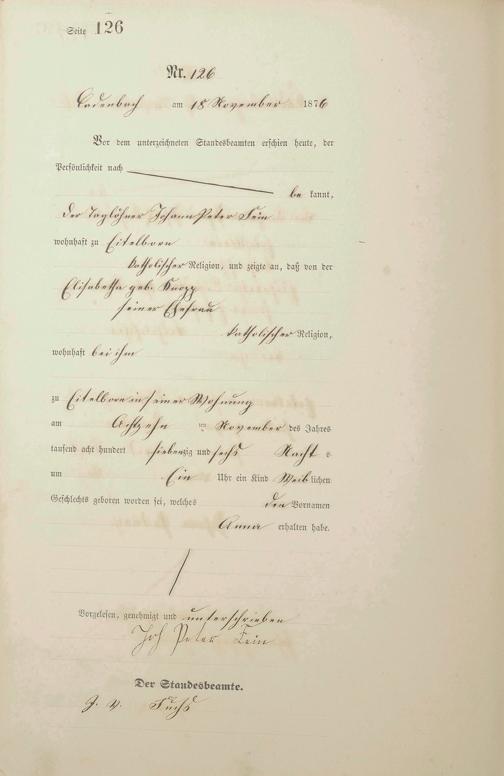 Seite 126
Nr. 126
Cadenbach am 18 November 1876
Vor dem unterzeichneten Standesbeamten erschien heute, der
Persönlichkeit nach
be kannt,
der Taglöhner Johann Peter Fein
wohnhaft zu Eitelborn
katholischer Religion, und zeigte an, daß von der
Elisabetha geb. Knopp
seiner Ehefrau
katholischer Religion,
wohnhaft bei ihm
zu Eitelborn in seiner Wohnung
am Achtzehn ten November des Jahres
tausend acht hundert siebenzig und sechs Nacht s
um Ein Uhr ein Kind Weib lichen
Geschlechts geboren worden sei, welches den Vornamen
Anna erhalten habe.
Vorgelesen, genehmigt und unterschrieben
Joh Peter Fein
Der Standesbeamte.
J. V. Fuchs